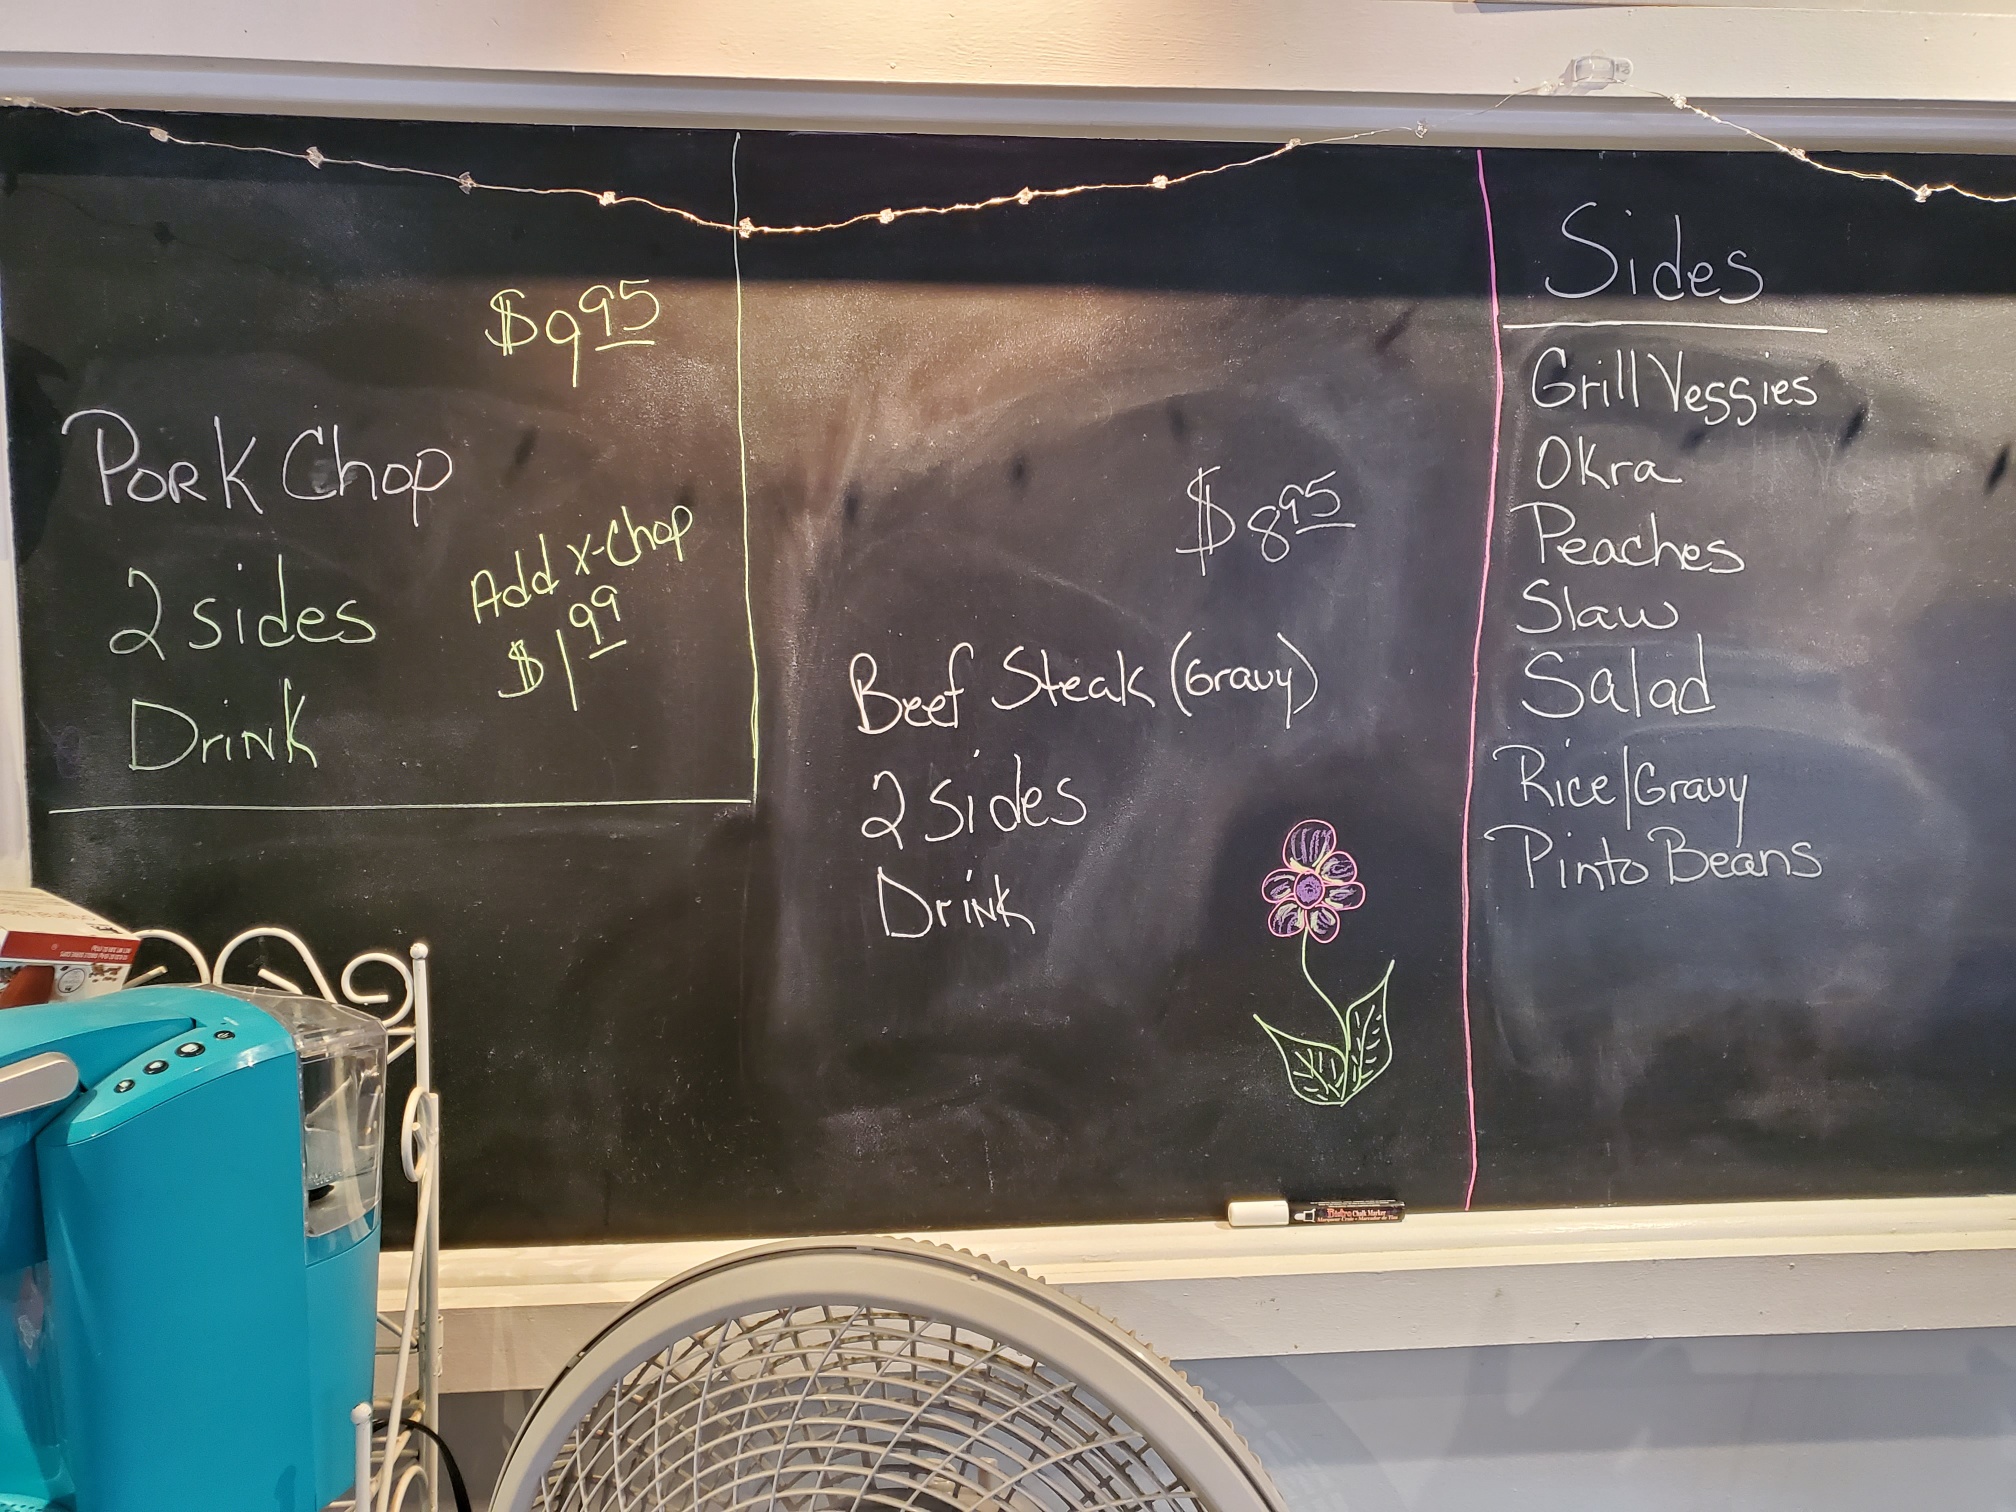 $9.95
Pork Chop
2 sides
Drink
Add X-Chop
$1.99
$8.95
Beef Steak (Gravy)
2 sides
Drink
Sides
Grill Veggies
Okra
Peaches
Slaw
Salad
Rice/Gravy
Pinto Beans
Bistro Chalk Marker